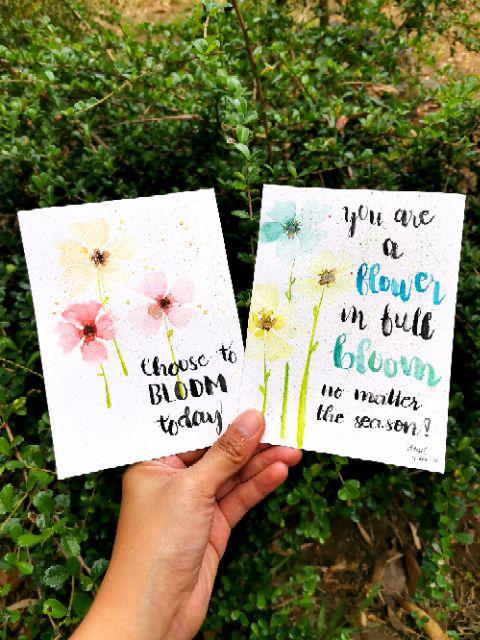 Choose to
BLOOM
today
you are
a
flower
in full
bloom
no matter
the season!